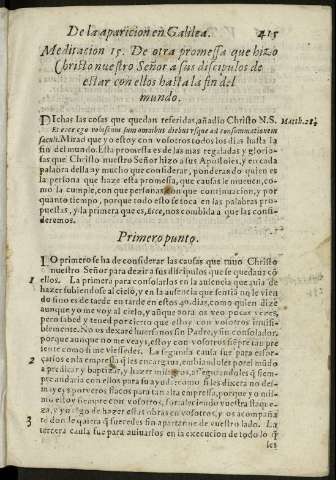 De la aparicion en Galilea. 415
Meditacion 15. De otra promessa que hizo
Christo nuestro Señor a sus discipulos de
estar con ellos hasta la fin del
mundo.
DIchas las cosas que quedan referidas, añadio Christo N.S. Matth.28.
Et ecce ego vobiscum sum omnibus diebus vsque ad consummationem
sæculi. Mirad que yo estoy con vosotros todos los dias hasta la
fin del mundo. Esta promessa es de las mas regaladas y glorio-
sas que Christo nuestro Señor hizo a sus Apostoles, y en cada
palabra della ay mucho que considerar, ponderando quien es
la persona que haze esta promessa, que causas le mueuen, co-
mo la cumple, con que personas, con que continuacion, y por
quanto tiempo, porque todo esto se toca en las palabras pro-
puestas, y la primera que es, Ecce, nos combida a que las consi-
deremos.
Primero punto.
LO primero se ha de considerar las causas que tuuo Christo
nuestro Señor para dezir a sus discipulos que se quedaua cõ
1 ellos. La primera para consolarlos en la ausencia que auia de
hazer subiendo al cielo, y en la ausencia que sentiã no le vien
do sino es de tarde en tarde en estos 40. dias, como quien dize
aunque yo me voy al cielo, y aunque aora os veo pocas vezes,
pero sabed y tened por cierto que estoy con vosotros inuisi-
blemente. No os dexarè huerfanos sin Padre, y sin consolador,
porque aunque no me veays, estoy con vosotros siẽpre tan pre
sente como si me viessedes. La segunda causa fue para esfor-
2 çarlos en la empressa q̃ les encargaua, embiandoles por el mũdo
a predicar y baptizar, y hazer milagros, assegurandoles q̃ siem-
pre andaria con ellos para su ayuda: como si les dixera no des-
mayeys por veros flacos para tan alta empressa, porque yo mis-
mo estoy siempre con vosotros, fortaleciendo vuestra flaque-
za, y yo tẽgo de hazer estas obras en vosotros, y os acompaña
3 rè donde quiera q̃ fueredes sin apartarme de vuestro lado. La
tercera causa fue para auiuarlos en la execucion de todo lo q̃
les